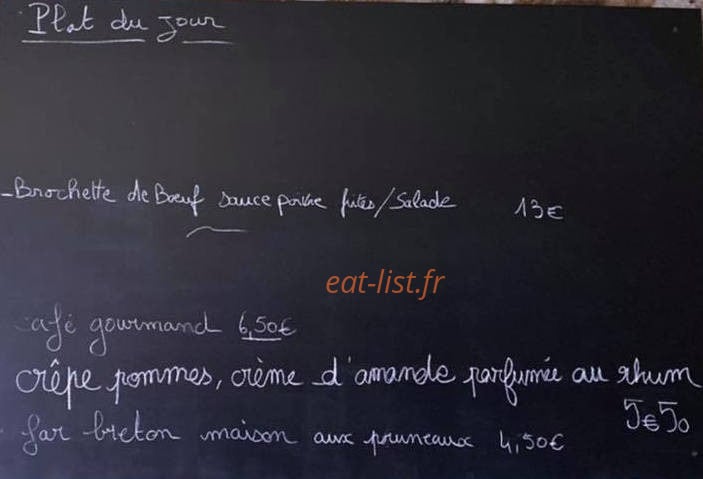 Plat du jour
-Brochette de Bœuf sauce poivre frites/Salade 13€
eat-list.fr
café gourmand 6,50€
crêpe pommes, crème d'amande parfumée au rhum
5€50
far breton maison aux pruneaux 4,50€